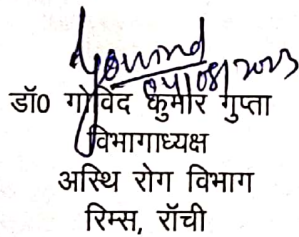 Govind
04/08/2023
डॉ0 गोविंद कुमार गुप्ता
विभागाध्यक्ष
अस्थि रोग विभाग
रिम्स, रॉची